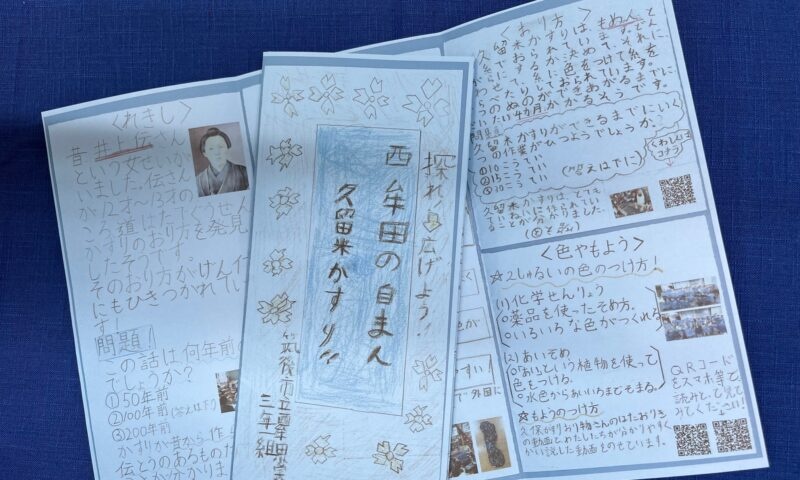 <れきし>
昔井上伝さん
という女せいが
いました。伝さん
が12才~13才の
ころ
かすりのおり方を発見
したそうです。
そのおり方がげん代
にもひきつがれてい
ます!
問題
この話は何年前
でしょうか?
①50年前
②100年前(答えは下)
③200年前
かすりが昔から作
伝とうのあるものだ
とが分かりま
探れ!広げよう!!
西牟田の自まん
久留米かすり!!
筑後市立西牟田小
三年
<おり方>
久留米かすりは、もめんと
糸でおられています。どん
ながらにするか決めて、それに
合わせて、糸に色をつけて糸を
ならべたりしておられています。
一つのぬのができあがるまでに
だいたい4カ月かかるそうです。
問題
久留米かすりができるまでにいく
つの作業がひつようでしょうか?
①10こうてい
②15こうてい
③30こうてい
(答えは下に)
くわしくは
コチラ
久留米かすりは、とても
ていねいに作られてい
ることが分かりました。
<色やもよう>
☆2しゅるいの色のつけ方!
(1)化学せんりょう
○薬品を使ったそめ方。
○いろいろな色がつくれる
(2)あいぞめ
○「あい」という植物を使って
色をつける。
○水色からあいいろまでそまる。
☆もようのつけ方
久保かすりおり物さんのはたおりき
の動画とわたしたちが分かりやすく
かい説した動画をのせています。
QRコード
をスマホ等で
読みとって見て
みてください!